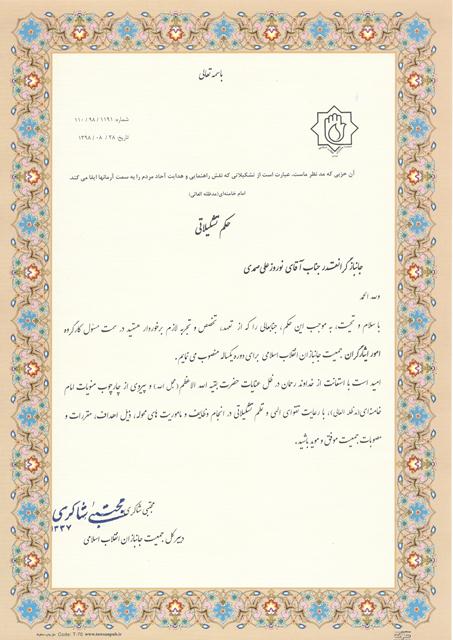 باسمه تعالی
شماره: ۱۱۹۱ / ۹۸ / ۱۱۰
تاریخ: ۲۸ / ۰۸ / ۱۳۹۸
آن حزبی که مد نظر ماست، عبارت است از تشکیلاتی که نقش راهنمایی و هدایت آحاد مردم را به سمت آرمانها ایفا می کند.
امام خامنه‌ای(مدظله العالی)
حکم تشکیلاتی
جانباز گرانقدر جناب آقای نوروزعلی صمدی
وله الحمد
با سلام و تحیت، به موجب این حکم، جنابعالی را که از تعهد، تخصص و تجربه لازم برخوردار هستید در سمت مسئول کارگروه
امور ایثارگران جمعیت جانبازان انقلاب اسلامی برای دوره یکساله منصوب می نمایم.
امید است با استعانت از خداوند رحمان در ظل عنایات حضرت بقیه الله الاعظم(عجل الله) و پیروی از چارچوب منویات امام
خامنه‌ای(مدظله العالی)، با رعایت تقوای الهی و نظم تشکیلاتی در انجام وظایف و ماموریت های محوله، ذیل اهداف، مقررات و
مصوبات جمعیت موفق و موید باشید.
مجتبی شاکری
مجتبی شاکری
۱۳۳۷
دبیرکل جمعیت جانبازان انقلاب اسلامی
Code: T-70 www.tawusapub.ir